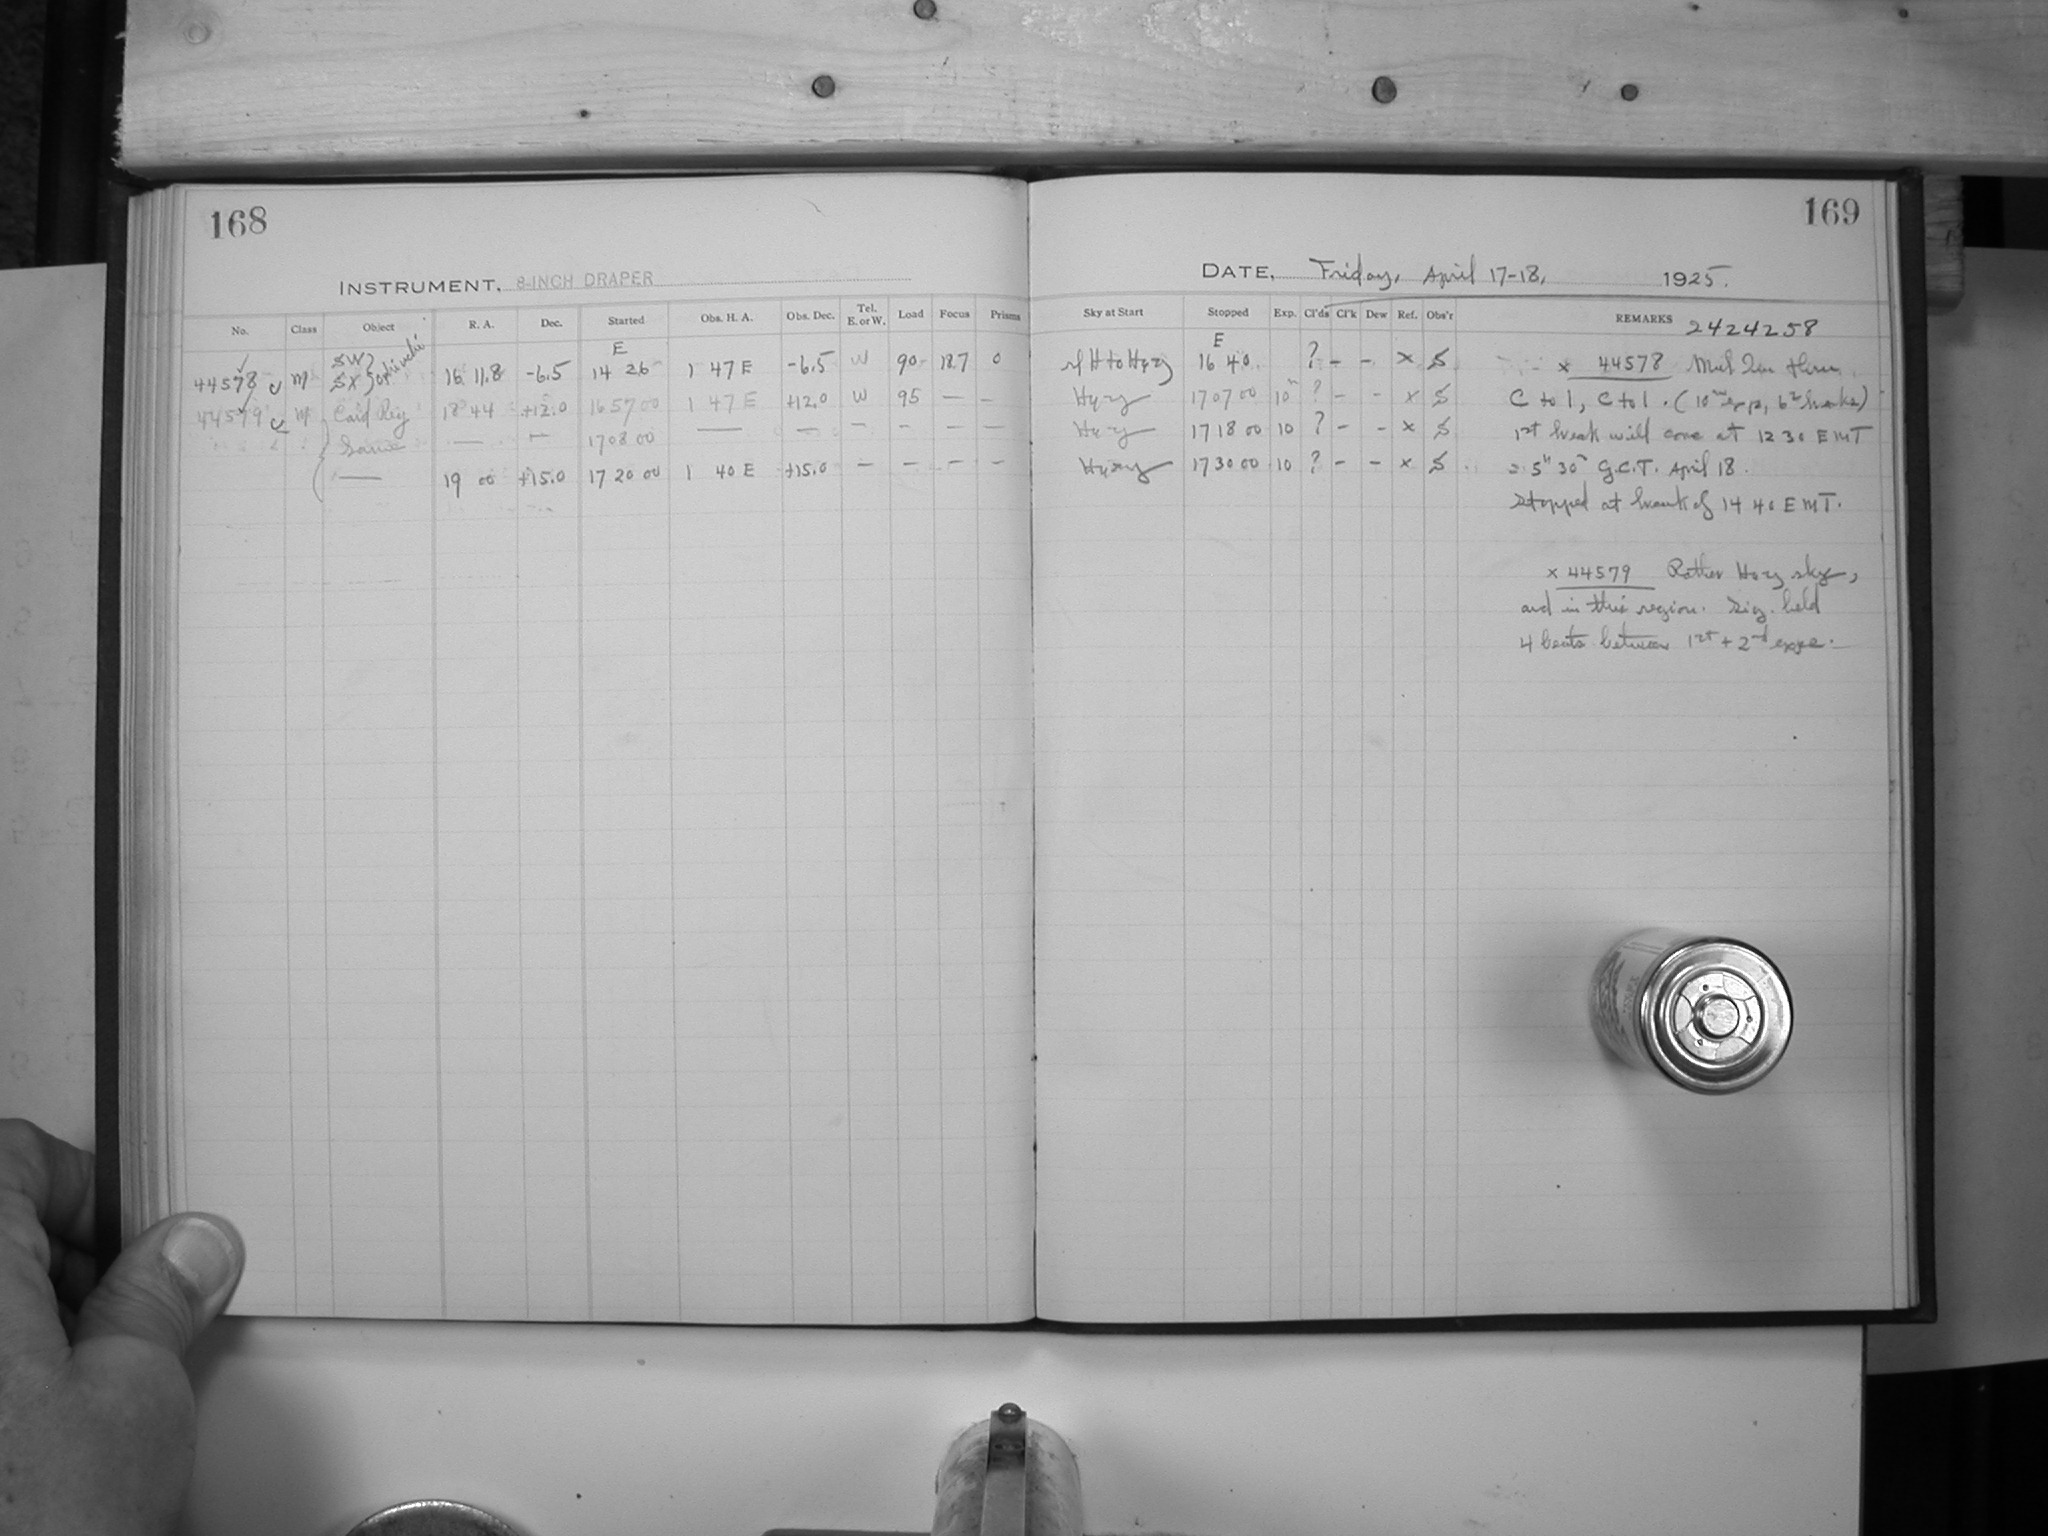 168
INSTRUMENT. 8-INCH DRAPER
No. Class Object R. A. Dec. Started Obs. H. A. Obs. Dec. Tel. E. or W. Load Focus Prisms
E
44578 M SW SX Ophiuchi 16 11.8 -6.5 14 26 1 47 E -6.5 W 90 18.7 0
44579 M 18 44 +12.0 16 57 00 1 47 E +12.0 W 95 — —
Same — — 17 08 00 — — — — — —
— 19 00 +15.0 17 20 00 1 40 E +15.0 — — — —
169
DATE, Friday, April 17-18, 1925.
Sky at Start Stopped Exp. Cl'ds Cl'k Dew Ref. Obs'r REMARKS 2424258
E
H to Hazy 16 40 ? - - x S
Hazy 17 07 00 10m ? - - x S
Hazy 17 18 00 10 ? - - x S
Hazy 17 30 00 10 ? - - x S
x 44578
C to 1, C to 1. (10m exp, breaks)
1st break will come at 12 30 E M T
5h 30m G.C.T. April 18.
Stopped at break of 14 40 E M T.
x 44579 Rather Hazy sky,
and in this region. held
4 beats between 1st + 2nd exps.